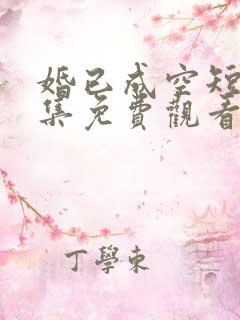 婚已成空短
集免費觀看
丁學東